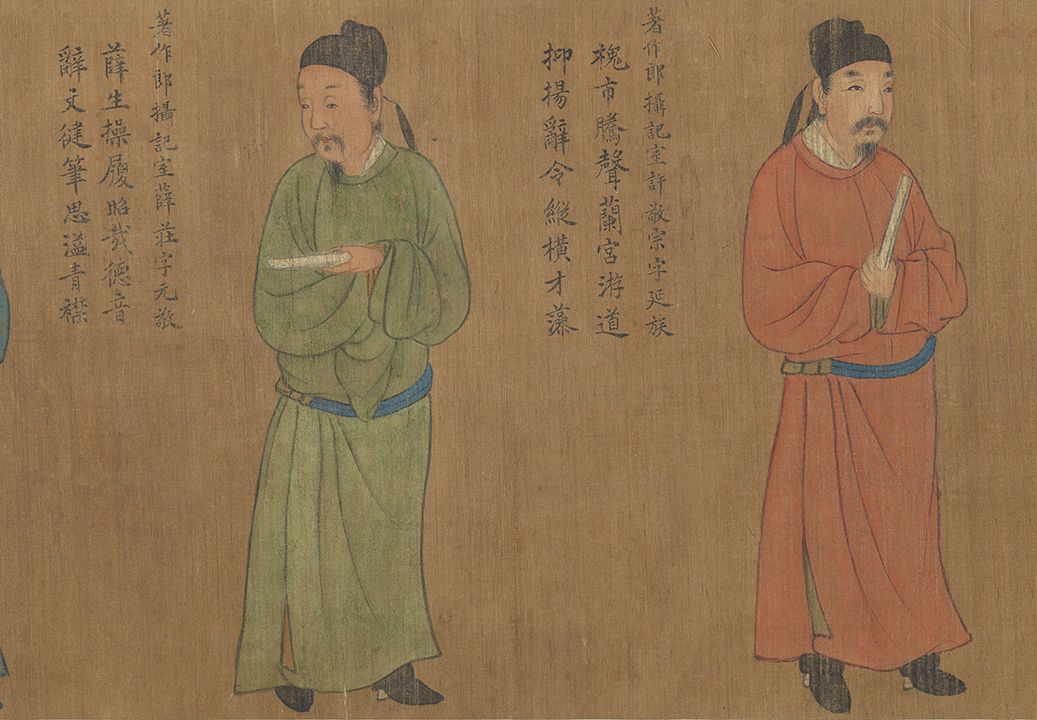 著作郎攝記室許敬宗字延族
槐市騰聲蘭宮游道
抑揚辭令縱橫才藻
著作郎攝記室薛莊字元敬
薛生操履昭哉德音
辭文徤筆思溢青襟